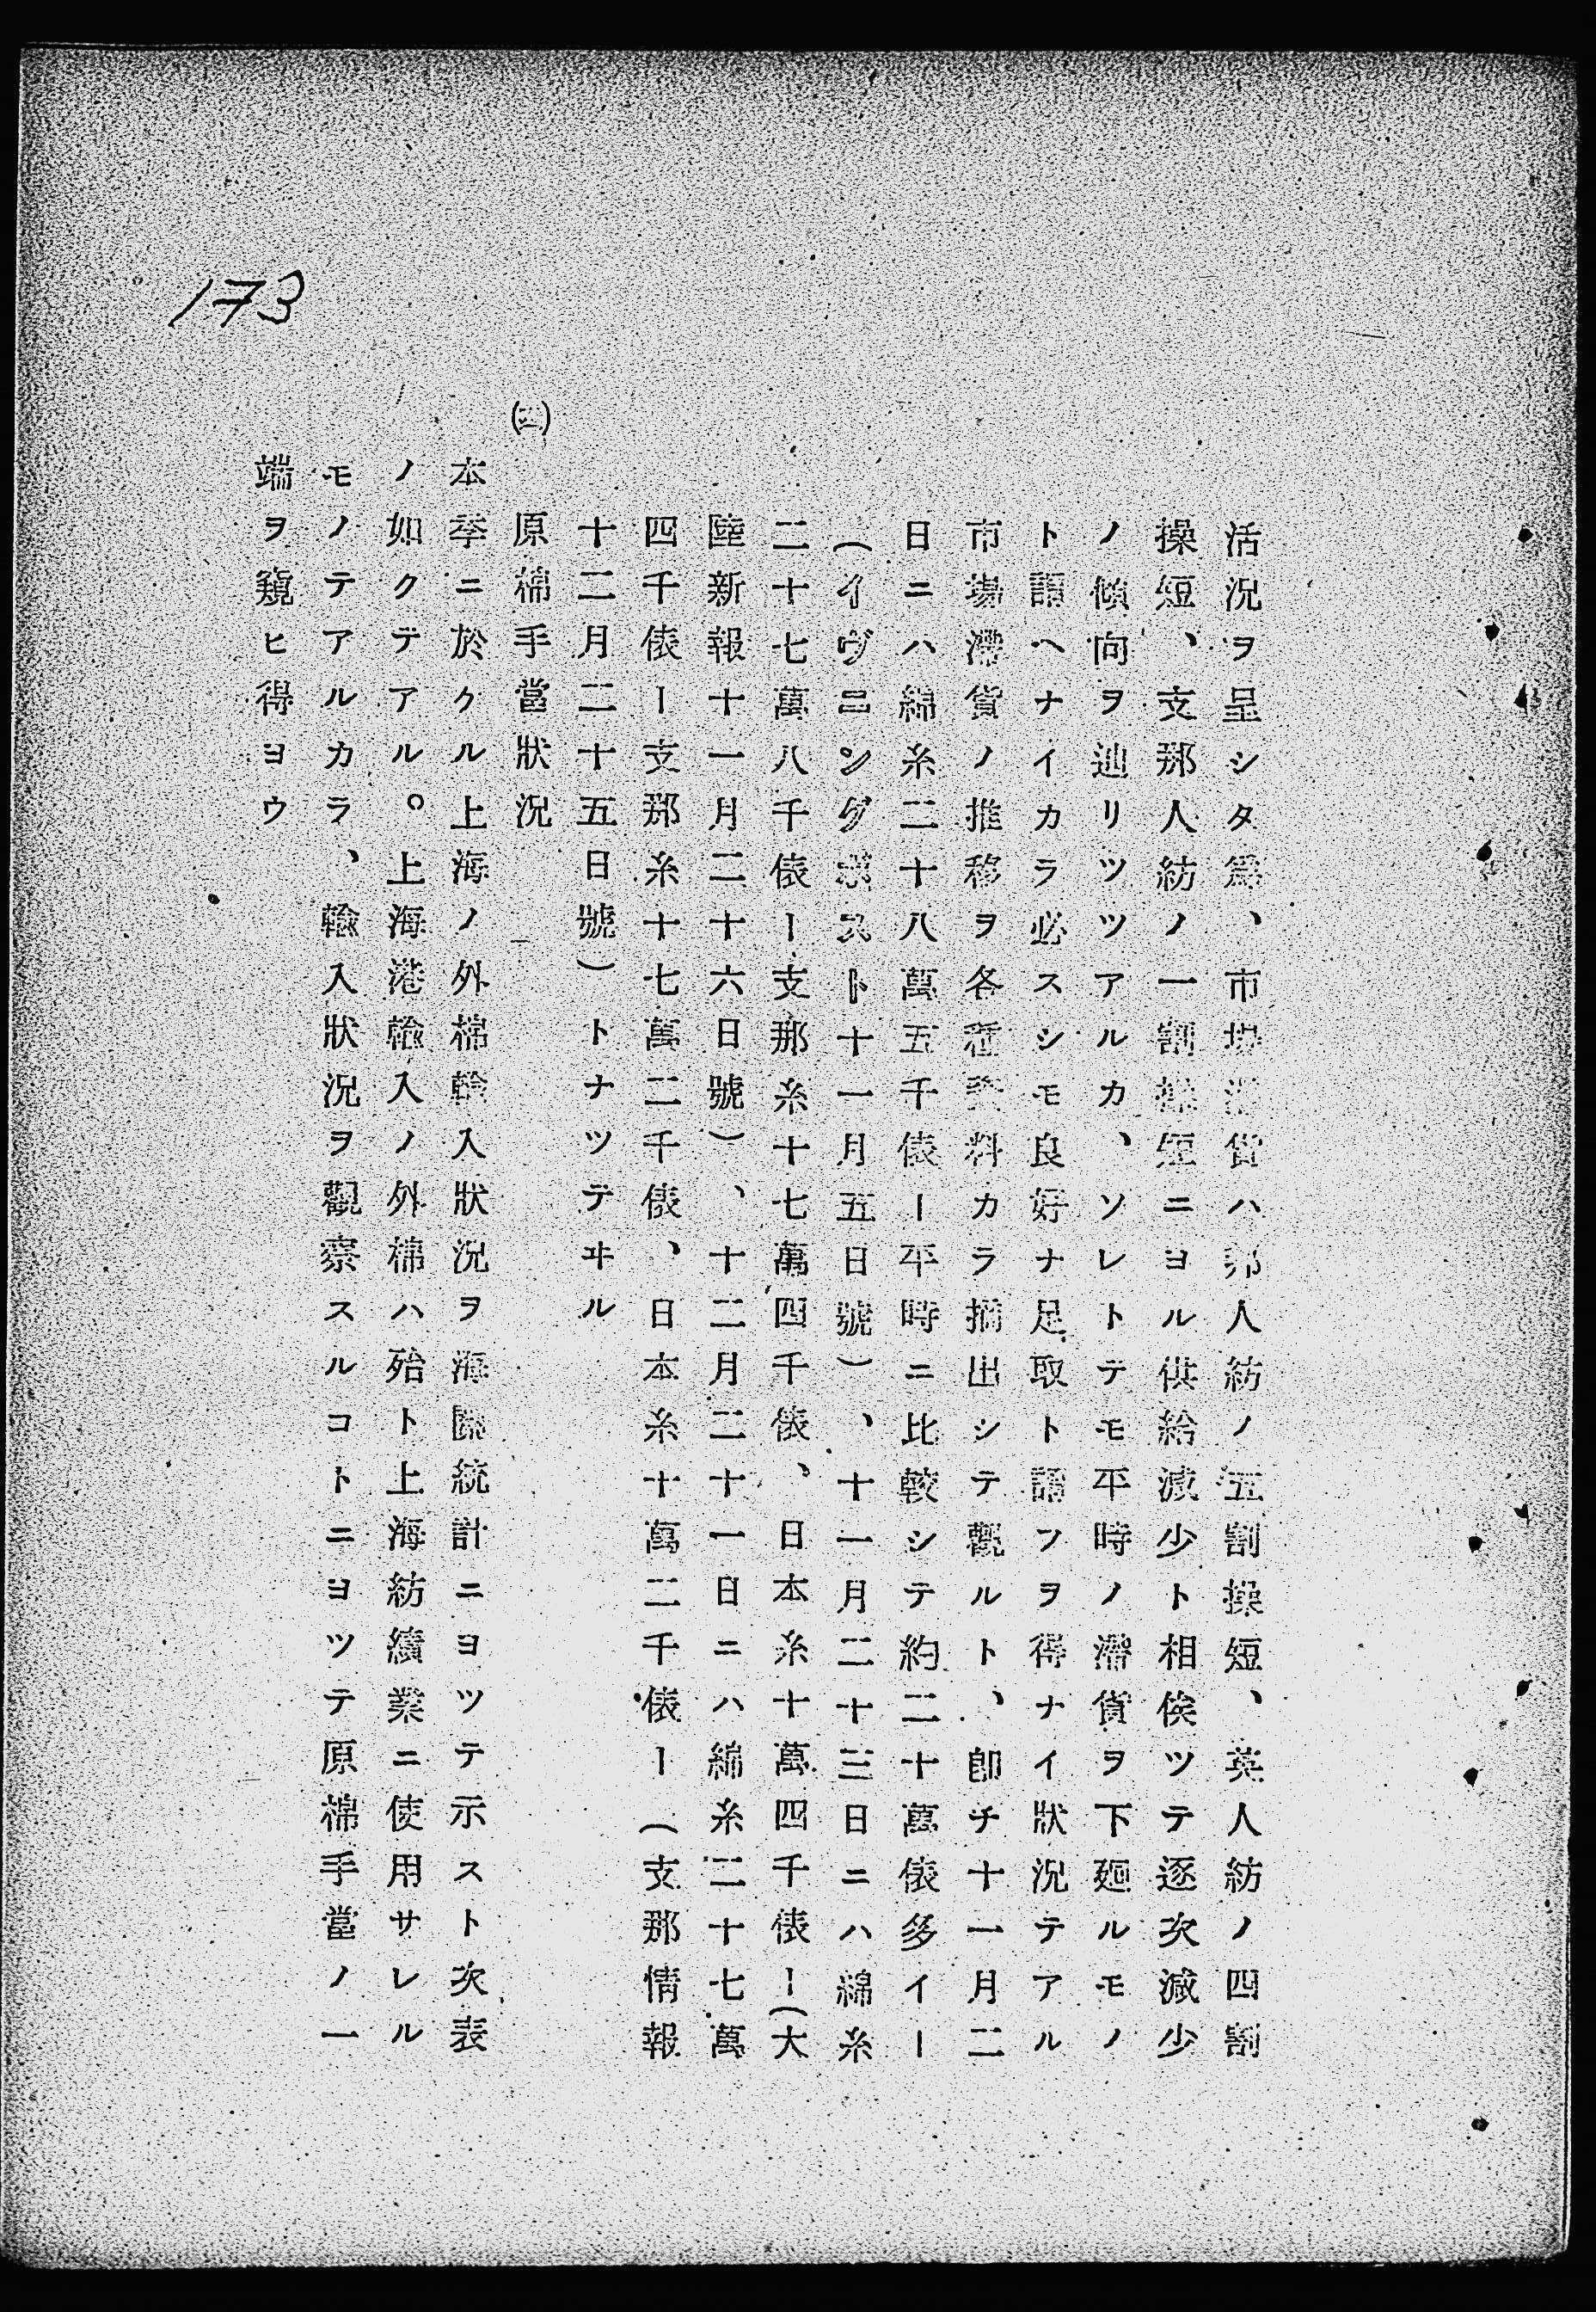 173
活況ヲ呈シタ爲、市場滯貨ハ邦人紡ノ五割操短、英人紡ノ四割
操短、支那人紡ノ一割操短ニヨル供給減少ト相俟ツテ逐次減少
ノ傾向ヲ辿リツツアルカ、ソレトテモ平時ノ滯貨ヲ下廻ルモノ
ト謂ヘナイカラ必スシモ良好ナ足取ト謂フヲ得ナイ狀況テアル
市場滯貨ノ推移ヲ各種資料カラ摘出シテ觀ルト、卽チ十一月二
日ニハ綿糸二十八萬五千俵ー平時ニ比較シテ約二十萬俵多イー
(イヴニングポスト十一月五日號)、十一月二十三日ニハ綿糸
二十七萬八千俵ー支那糸十七萬四千俵、日本糸十萬四千俵ー(大
陸新報十一月二十六日號)、十二月二十一日ニハ綿糸二十七萬
四千俵ー支那糸十七萬二千俵、日本糸十萬二千俵ー(支那情報
十二月二十五日號)トナツテヰル
原棉手當狀況
本季ニ於クル上海ノ外棉輸入狀況ヲ海關統計ニヨツテ示スト次表
ノ如クデアル。上海港輸入ノ外棉ハ殆ト上海紡績業ニ使用サレル
モノテアルカラ、輸入狀況ヲ觀察スルコトニヨツテ原棉手當ノ一
端ヲ窺ヒ得ヨウ